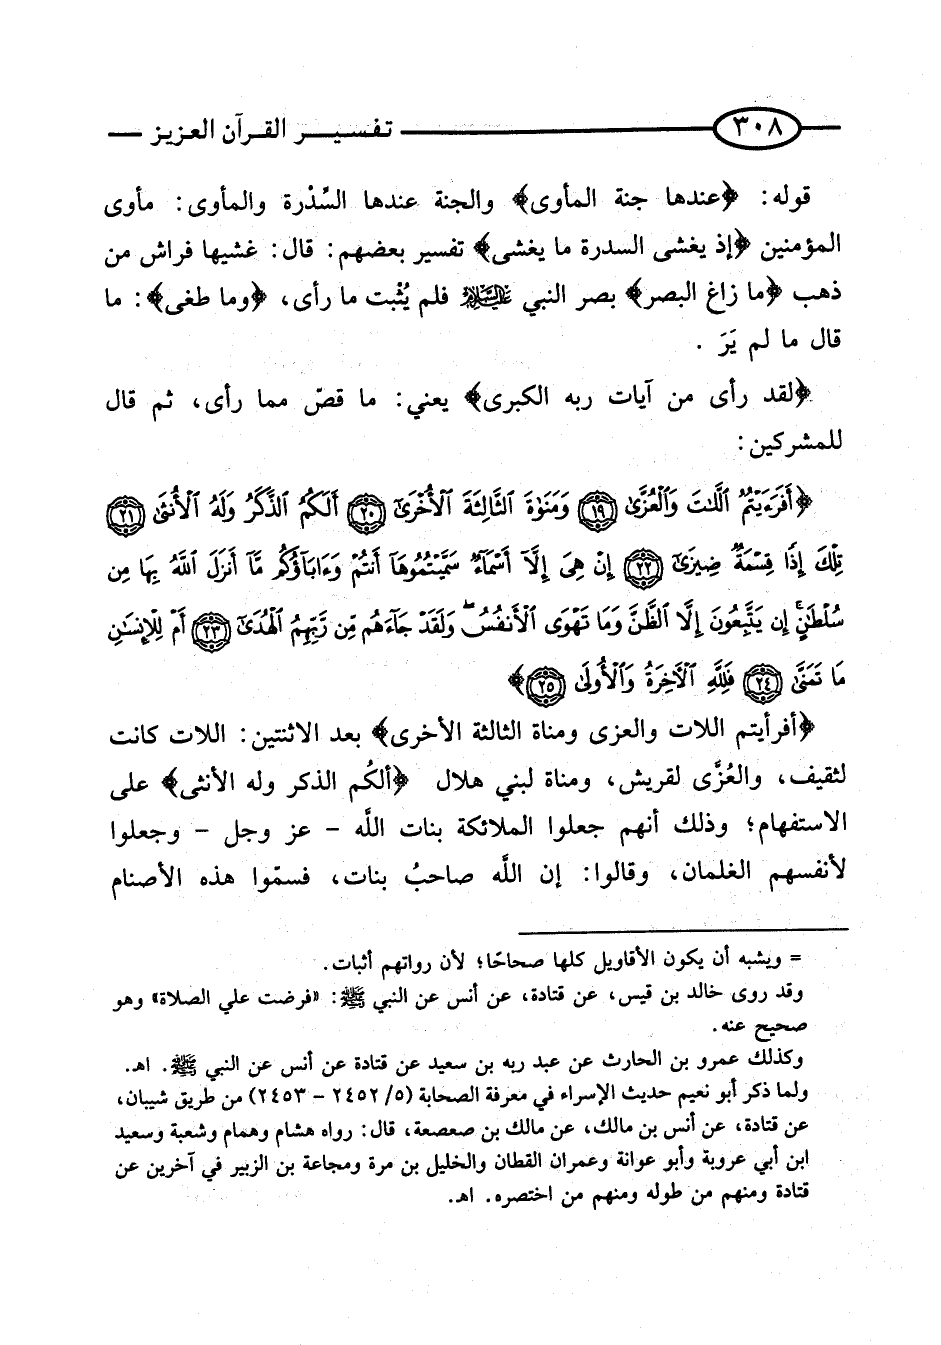 ٣٠٨ تفسير القرآن العزيز
قوله: ﴿عندها جنة المأوى﴾ والجنة عندها السِّدْرة والمأوى: مأوى
المؤمنين ﴿إذ يغشى السدرة ما يغشى﴾ تفسير بعضهم: قال: غشيها فراش من
ذهب ﴿ما زاغ البصر﴾ بصر النبي عليه السلام فلم يُثْبت ما رأى، ﴿وما طغى﴾: ما
قال ما لم يَرَ .
﴿لقد رأى من آيات ربه الكبرى﴾ يعني: ما قصّ مما رأى، ثم قال
للمشركين:
﴿أَفَرَءَيْتُمُ ٱللَّٰتَ وَٱلْعُزَّىٰ ١٩ وَمَنَوٰةَ ٱلثَّالِثَةَ ٱلْأُخْرَىٰٓ ٢٠ أَلَكُمُ ٱلذَّكَرُ وَلَهُ ٱلْأُنثَىٰ ٢١
تِلْكَ إِذًا قِسْمَةٌ ضِيزَىٰٓ ٢٢ إِنْ هِىَ إِلَّآ أَسْمَآءٌ سَمَّيْتُمُوهَآ أَنتُمْ وَءَابَآؤُكُم مَّآ أَنزَلَ ٱللَّهُ بِهَا مِن
سُلْطَٰنٍۚ إِن يَتَّبِعُونَ إِلَّا ٱلظَّنَّ وَمَا تَهْوَى ٱلْأَنفُسُۖ وَلَقَدْ جَآءَهُم مِّن رَّبِّهِمُ ٱلْهُدَىٰٓ ٢٣ أَمْ لِلْإِنسَٰنِ
مَا تَمَنَّىٰ ٢٤ فَلِلَّهِ ٱلْأٓخِرَةُ وَٱلْأُولَىٰ ٢٥﴾
﴿أفرأيتم اللات والعزى ومناة الثالثة الأخرى﴾ بعد الاثنتين: اللات كانت
لثقيف، والعُزَّى لقريش، ومناة لبني هلال ﴿ألكُم الذكر وله الأنثى﴾ على
الاستفهام؛ وذلك أنهم جعلوا الملائكة بنات اللَّه - عز وجل - وجعلوا
لأنفسهم الغلمان، وقالوا: إن اللَّه صاحبُ بنات، فسمّوا هذه الأصنام
= ويشبه أن يكون الأقاويل كلها صحاحًا؛ لأن رواتهم أثبات.
وقد روى خالد بن قيس، عن قتادة، عن أنس عن النبي ﷺ: «فرضت علي الصلاة» وهو
صحيح عنه.
وكذلك عمرو بن الحارث عن عبد ربه بن سعيد عن قتادة عن أنس عن النبي ﷺ. اهـ.
ولما ذكر أبو نعيم حديث الإسراء في معرفة الصحابة (٥/ ٢٤٥٢ - ٢٤٥٣) من طريق شيبان،
عن قتادة، عن أنس بن مالك، عن مالك بن صعصعة، قال: رواه هشام وهمام وشعبة وسعيد
ابن أبي عروبة وأبو عوانة وعمران القطان والخليل بن مرة ومجاعة بن الزبير في آخرين عن
قتادة ومنهم من طوله ومنهم من اختصره. اهـ.